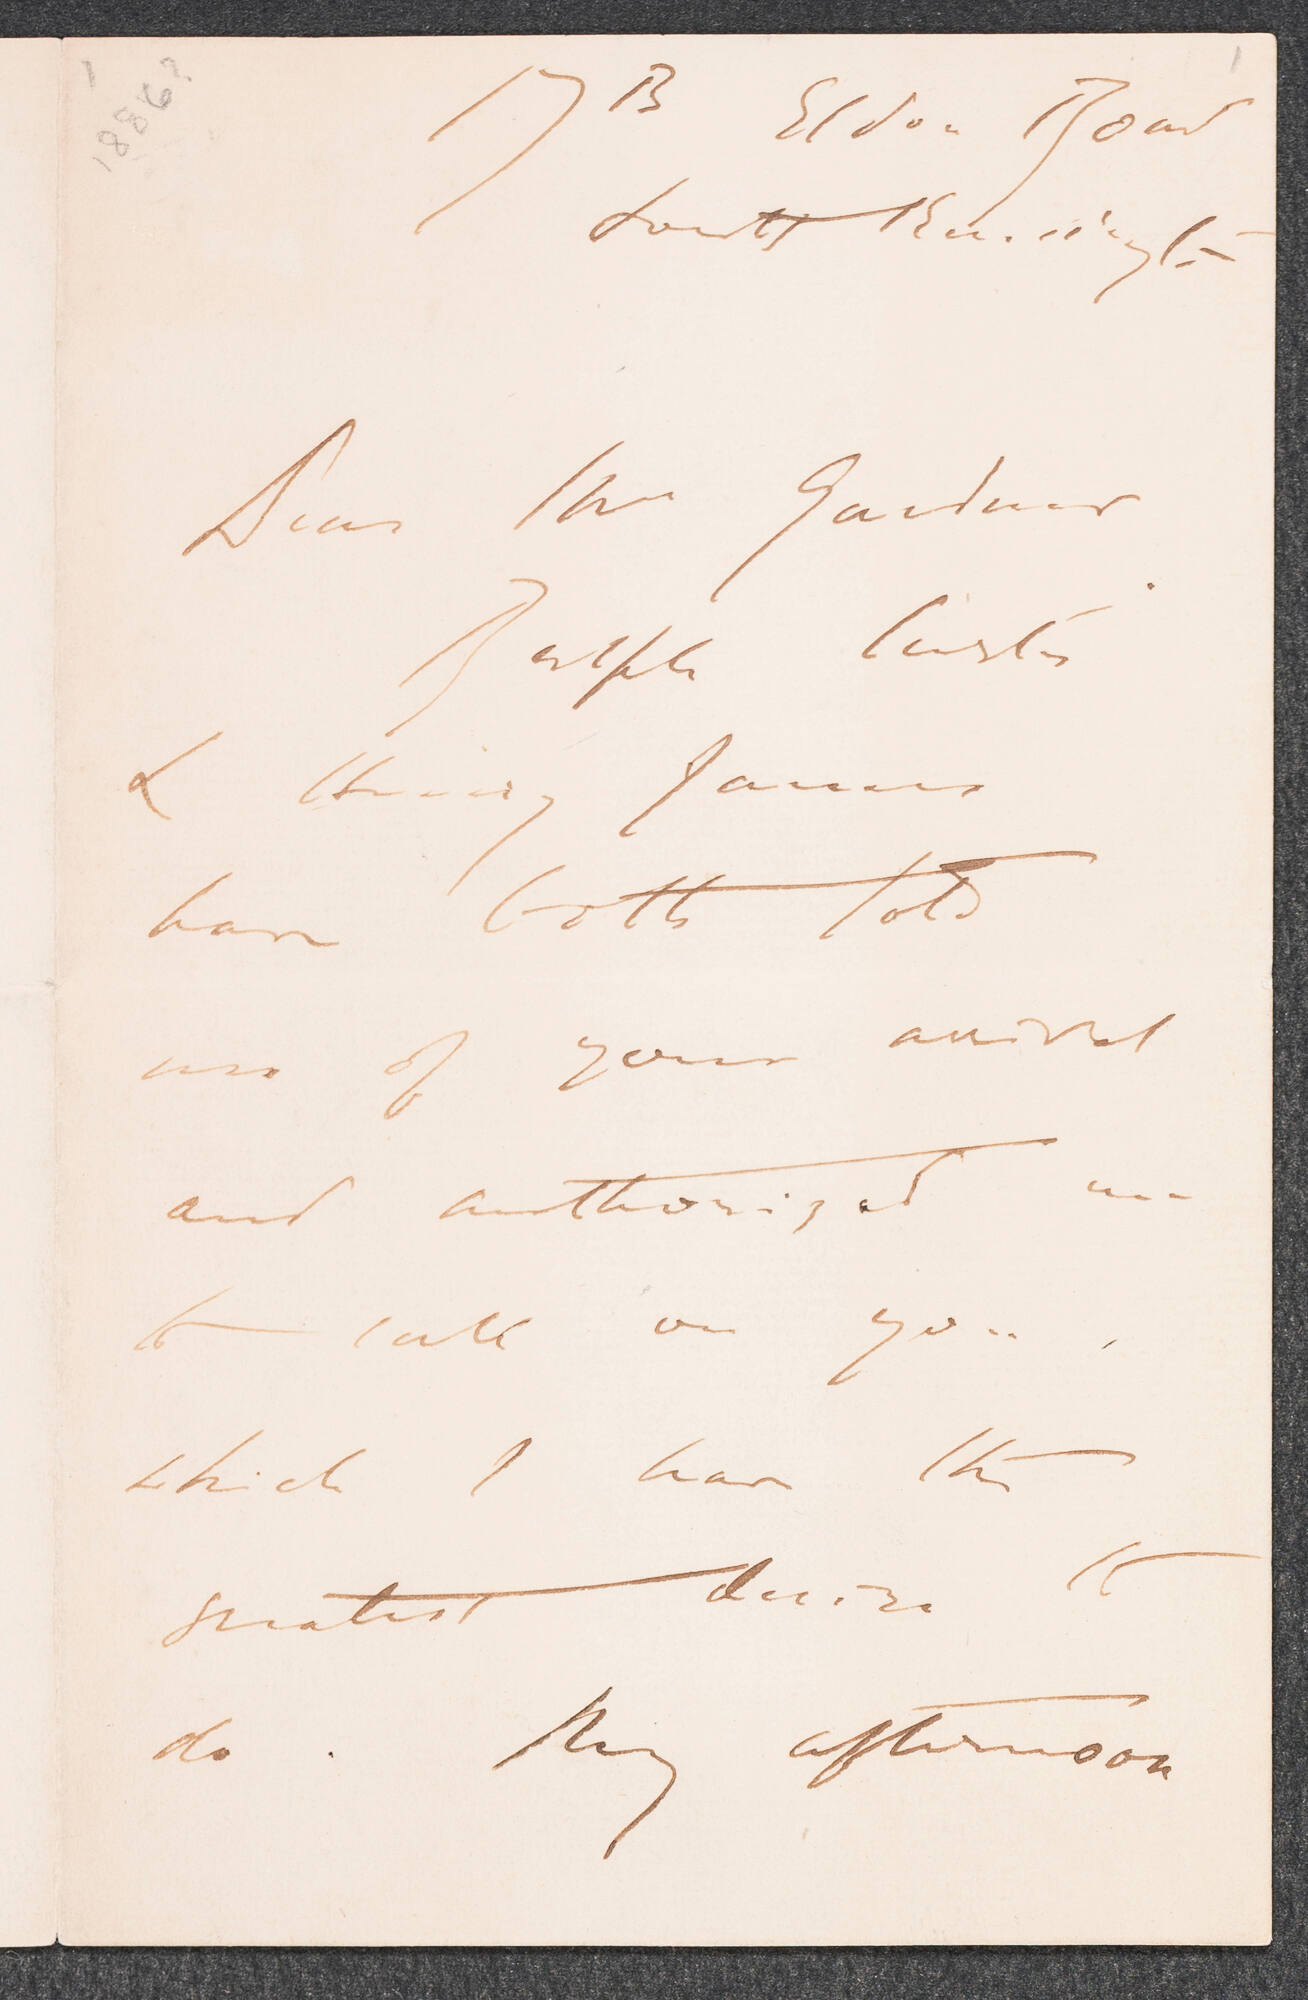 1
1886?
1
17B Eldon Road
South Kensington
Dear Mrs Gardner
Ralph Curtis
& Henry James
have both told
me of your arrival
and authorized me
to call on you,
which I have the
greatest desire to
do. My afternoon